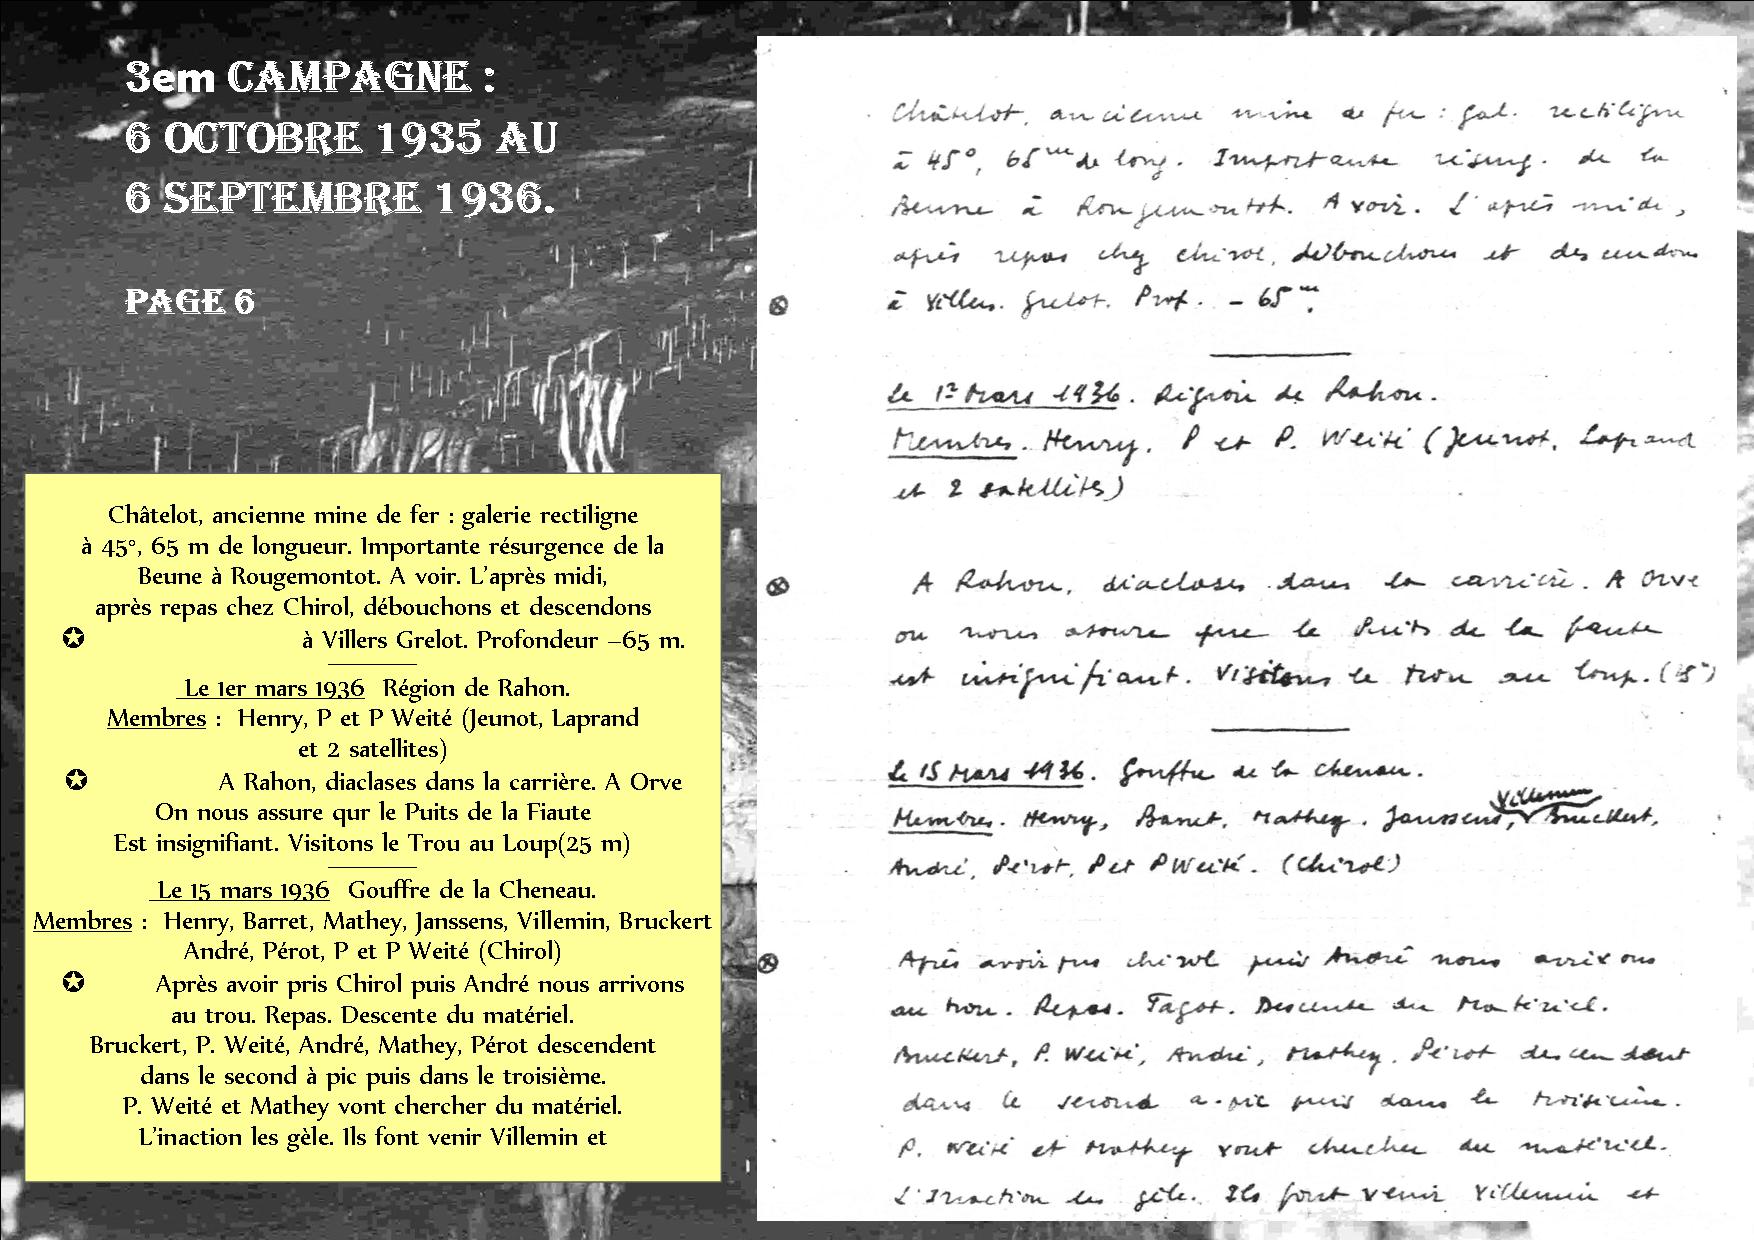 3em CAMPAGNE :
6 OCTOBRE 1935 AU
6 SEPTEMBRE 1936.
PAGE 6
Châtelot, ancienne mine de fer : galerie rectiligne
à 45°, 65 m de longueur. Importante résurgence de la
Beune à Rougemontot. A voir. L'après midi,
après repas chez Chirol, débouchons et descendons
✪ à Villers Grelot. Profondeur –65 m.
Le 1er mars 1936 Région de Rahon.
Membres : Henry, P et P Weité (Jeunot, Laprand
et 2 satellites)
✪ A Rahon, diaclases dans la carrière. A Orve
On nous assure qur le Puits de la Fiaute
Est insignifiant. Visitons le Trou au Loup(25 m)
Le 15 mars 1936 Gouffre de la Cheneau.
Membres : Henry, Barret, Mathey, Janssens, Villemin, Bruckert
André, Pérot, P et P Weité (Chirol)
✪ Après avoir pris Chirol puis André nous arrivons
au trou. Repas. Descente du matériel.
Bruckert, P. Weité, André, Mathey, Pérot descendent
dans le second à pic puis dans le troisième.
P. Weité et Mathey vont chercher du matériel.
L'inaction les gèle. Ils font venir Villemin et
Châtelot, ancienne mine de fer : gal. rectiligne
à 45°, 65 m de long. Importante résurg. de la
Beune à Rougemontot. A voir. L'après midi,
après repas chez Chirol, débouchons et descendons
⊗ à Villers. Grelot. Prof. – 65 m.
Le 1er Mars 1936. Région de Rahon.
Membres. Henry. P et P. Weité (Jeunot, Laprand
et 2 satellites)
⊗ A Rahon, diaclases dans la carrière. A Orve
on nous assure que le Puits de la faute
est insignifiant. Visitons le trou au loup.
Le 15 Mars 1936. Gouffre de la Chenau.
Membres. Henry, Barret, Mathey. Janssens, Villemin Bruckert,
André, Pérot, P et P Weité. (Chirol)
⊗ Après avoir pris Chirol puis André nous arrivons
au trou. Repas. Fagot. Descente du Matériel.
Bruckert, P. Weité, André, Mathey, Pérot descendent
dans le second a-pic puis dans le troisième.
P. Weité et Mathey vont chercher du matériel.
L'Inaction les gèle. Ils font venir Villemin et